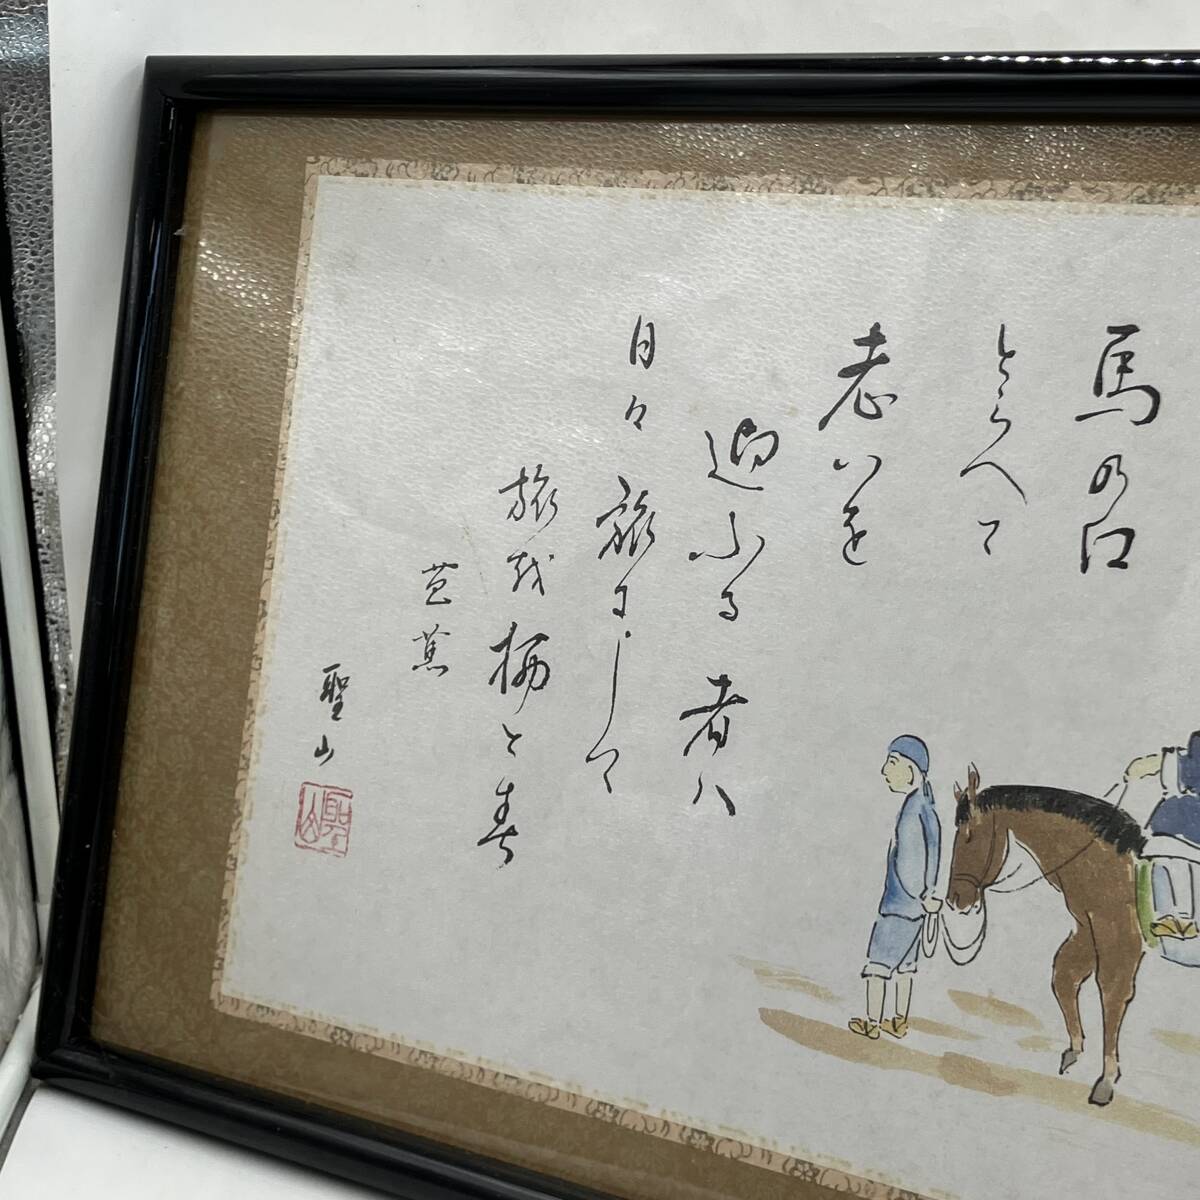 馬の口
とらへて
老いを
迎ふる者ハ
日々旅にして
旅を栖と寿
芭蕉
聖山
聖山